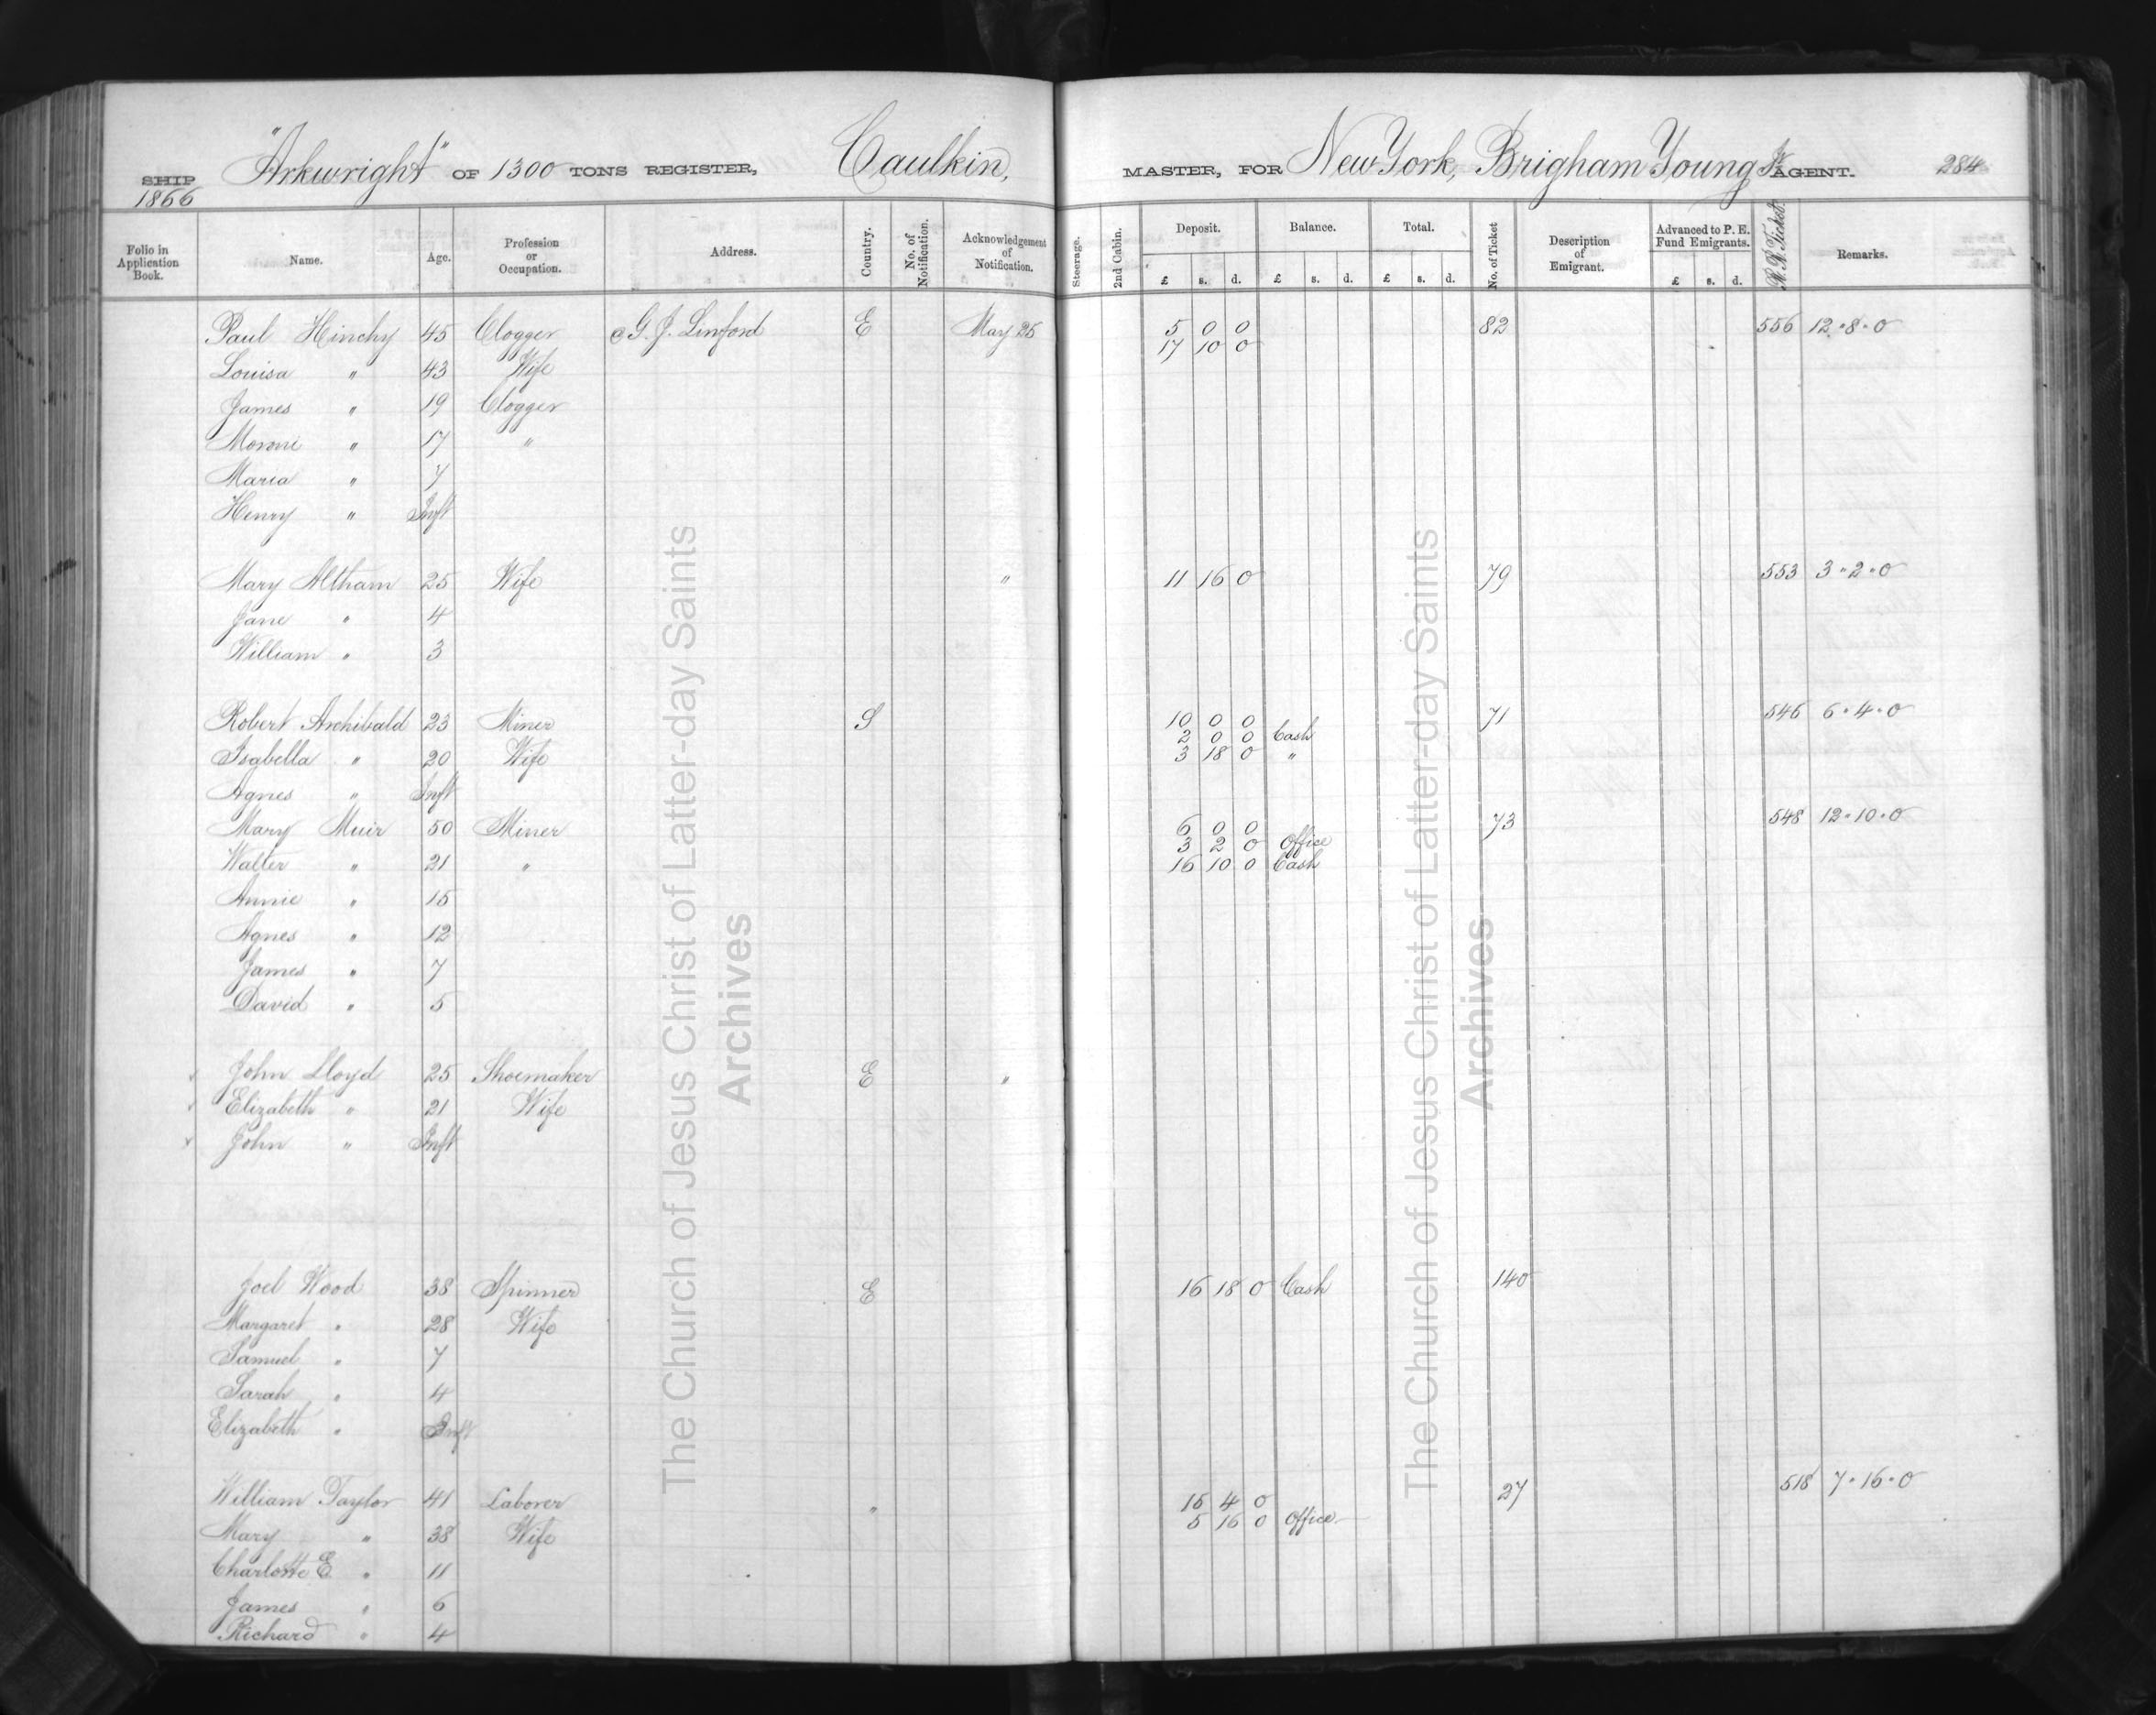 SHIP "Arkwright" OF 1300 TONS REGISTER, Caulkin, MASTER, FOR New York, Brigham Young Jr AGENT. 284
1866
Folio in Application Book. Name. Age. Profession or Occupation. Address. Country. No. of Notification. Acknowledgement of Notification. Steerage. 2nd Cabin. Deposit. £ s. d. Balance. £ s. d. Total. £ s. d. No. of Ticket Description of Emigrant. Advanced to P. E. Fund Emigrants. £ s. d. R. R. Ticket. Remarks.
Paul Hinchy 45 Clogger G. J. Linford E May 25 5 0 0 82 556 12 " 8 " 0
17 10 0
Louisa " 43 Wife
James " 19 Clogger
Moroni " 17 "
Maria " 7
Henry " Inft
Mary Altham 25 Wife " 11 16 0 79 553 3 " 2 " 0
Jane " 4
William " 3
Robert Archibald 23 Miner S 10 0 0 71 546 6 " 4 " 0
2 0 0 Cash
Isabella " 20 Wife 3 18 0 "
Agnes " Inft
Mary Muir 50 Miner 6 0 0 73 548 12 " 10 " 0
3 2 0 Office
Walter " 21 " 16 10 0 Cash
Annie " 15
Agnes " 12
James " 7
David " 5
x John Lloyd 25 Shoemaker E "
x Elizabeth " 21 Wife
x John " Inft
Joel Wood 38 Spinner E 16 18 0 Cash 140
Margaret " 28 Wife
Samuel " 7
Sarah " 4
Elizabeth " Inft
William Taylor 41 Laborer " 15 4 0 27 518 7 " 16 " 0
5 16 0 Office
Mary " 38 Wife
Charlotte E. " 11
James " 6
Richard " 4
The Church of Jesus Christ of Latter-day Saints
Archives
The Church of Jesus Christ of Latter-day Saints
Archives